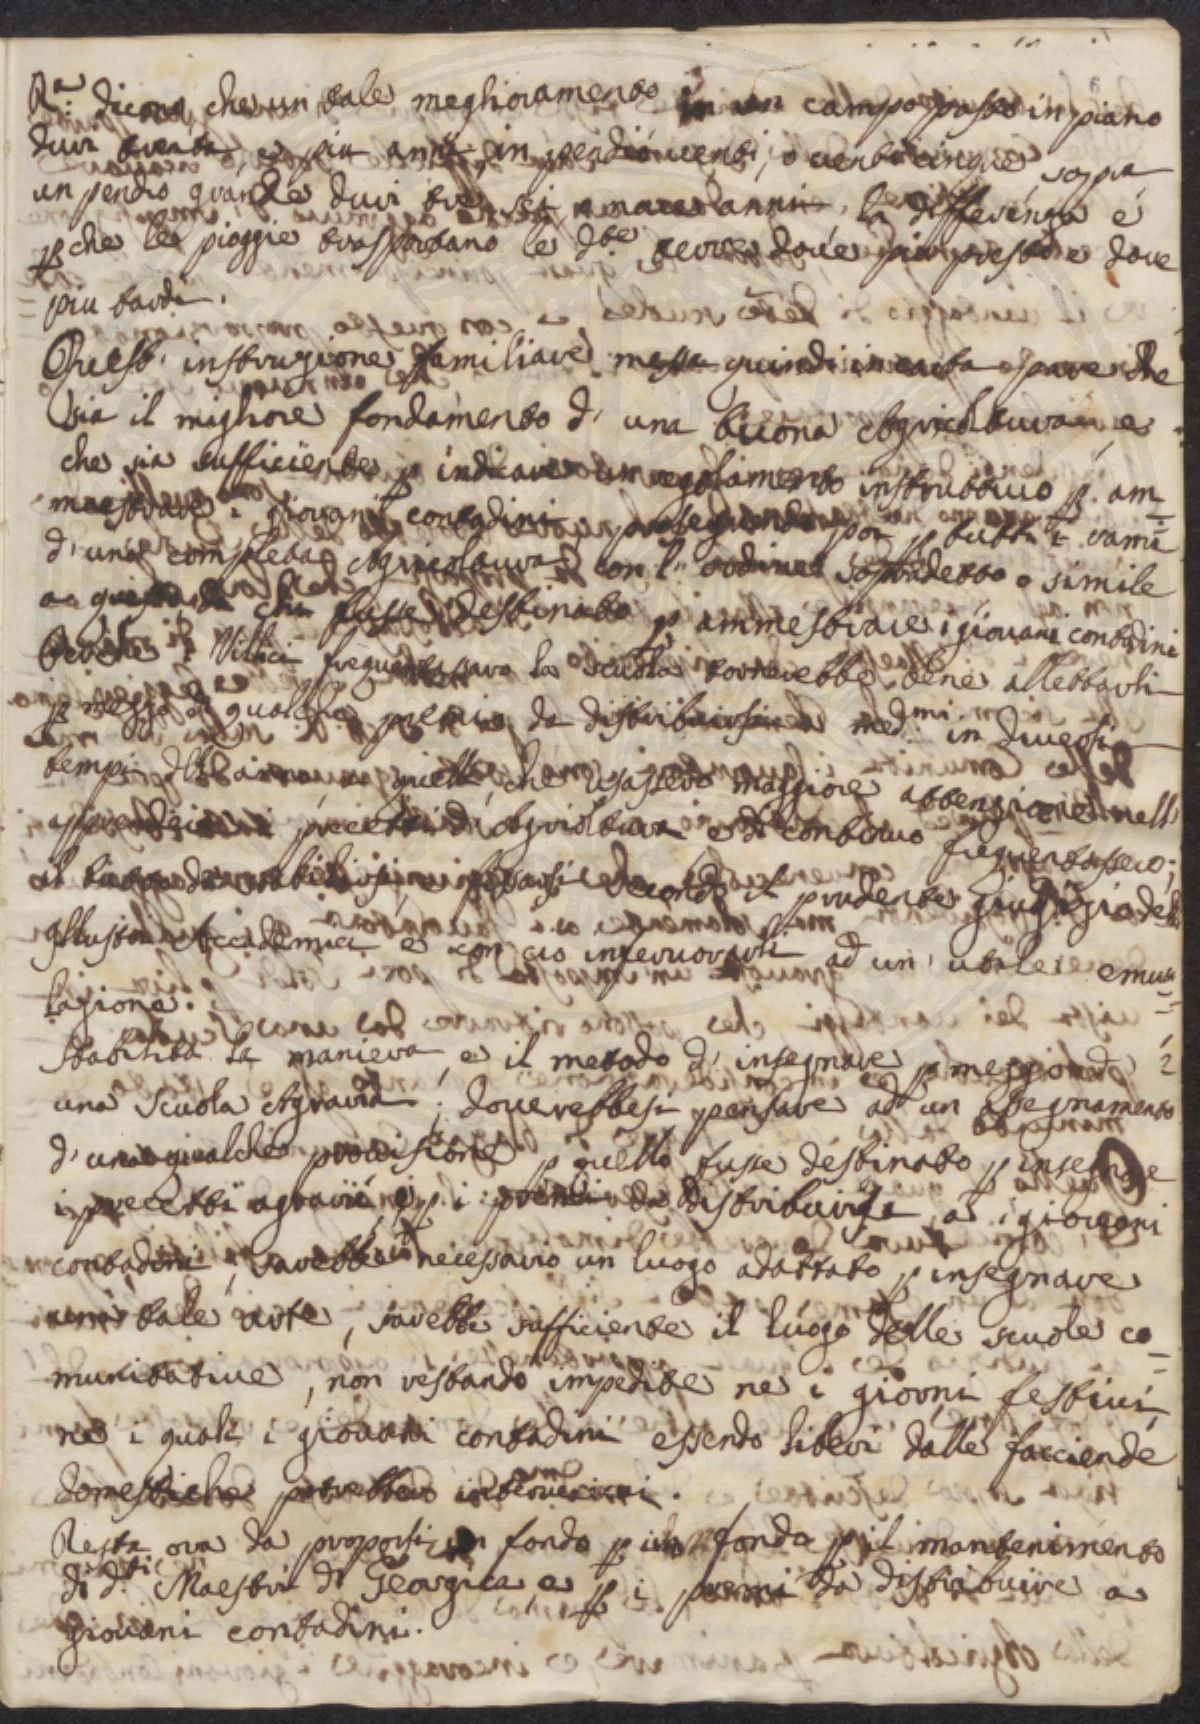 R.a dicono, che un tale meglioramento in un campo posto in piano
duri trenta, e piu anni, in pendio venti, o venti cinque, sopra
un pendio grande duri tre, sei anni. la differenza é
p che le pioggie trasportano le d.te terre dove piu presto e dove
piu tardi.
Quest' instruzione familiare messa quindi in carta pare che
sia il migliore fondamento d' una buona Agricoltura, e
che sia sufficiente p indicare un regolamento instruttivo p am=
maestrare i giovani contadini proseguendo poi p tutti i rami
d' una completa Agricoltura con l' ordine sopradetto o simile
a questo da chi fusse destinato p ammestrare i giovani contadini
Perche i Villici frequentassero la scuola tornerebbe bene allettarli
p mezzo di qualche premio da distribuirsi a med.mi in diversi
tempi dell' anno a quelli, che usassero maggiore attenzione nell'
apprendere i precetti di Agricoltura e di continuo frequentassero;
il tutto da stabilirsi, e fissarsi secondo il prudente giudizio delli
Illustri Accademici e con cio infervorarli ad un' utile emu=
lazione.
Stabilita la maniera, e il metodo d' insegnare p mezzo d'
una scuola Agraria; doverebbesi pensare ad un assegnamento
d' una qualche provisione p quello fusse destinato p insegnare
i precetti agrarii, e p i premii da distribuirsi a i giovani
contadini; sarebbe necessario un luogo adattato p insegnare
una tale arte, sarebbe sufficiente il luogo delle scuole co=
munitative, non restando impedite ne i giorni festivi,
ne i quali i giovani contadini essendo liberi dalle facciende
domestiche potrebbero intervenirvi.
Resta ora da proporsi un fondo p il mantenimento
di d.ti Maestri di Georgica, e p i premi da distribuire a
giovani contadini.